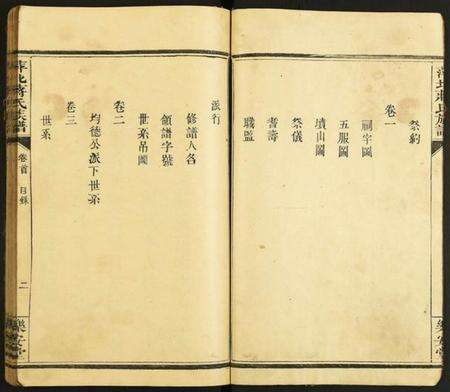 祭約
卷一
祠宇圖
五服圖
墳山圖
祭儀
耆壽
職監
派行
修譜人名
領譜字號
世系吊圖
卷二
均德公派下世系
卷三
世系
蔣氏族譜
卷首 目錄
二
樂安堂
樂安堂